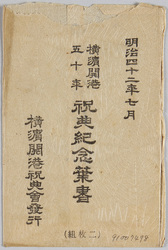 明治四十二年七月
横濱開港
五十年
祝典紀念葉書
横濱開港祝典會發行
(二枚組)